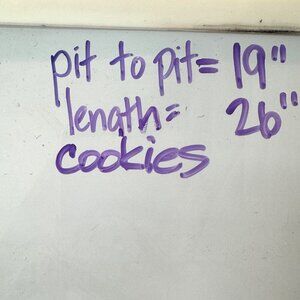 pit to pit= 19"
length= 26"
cookies